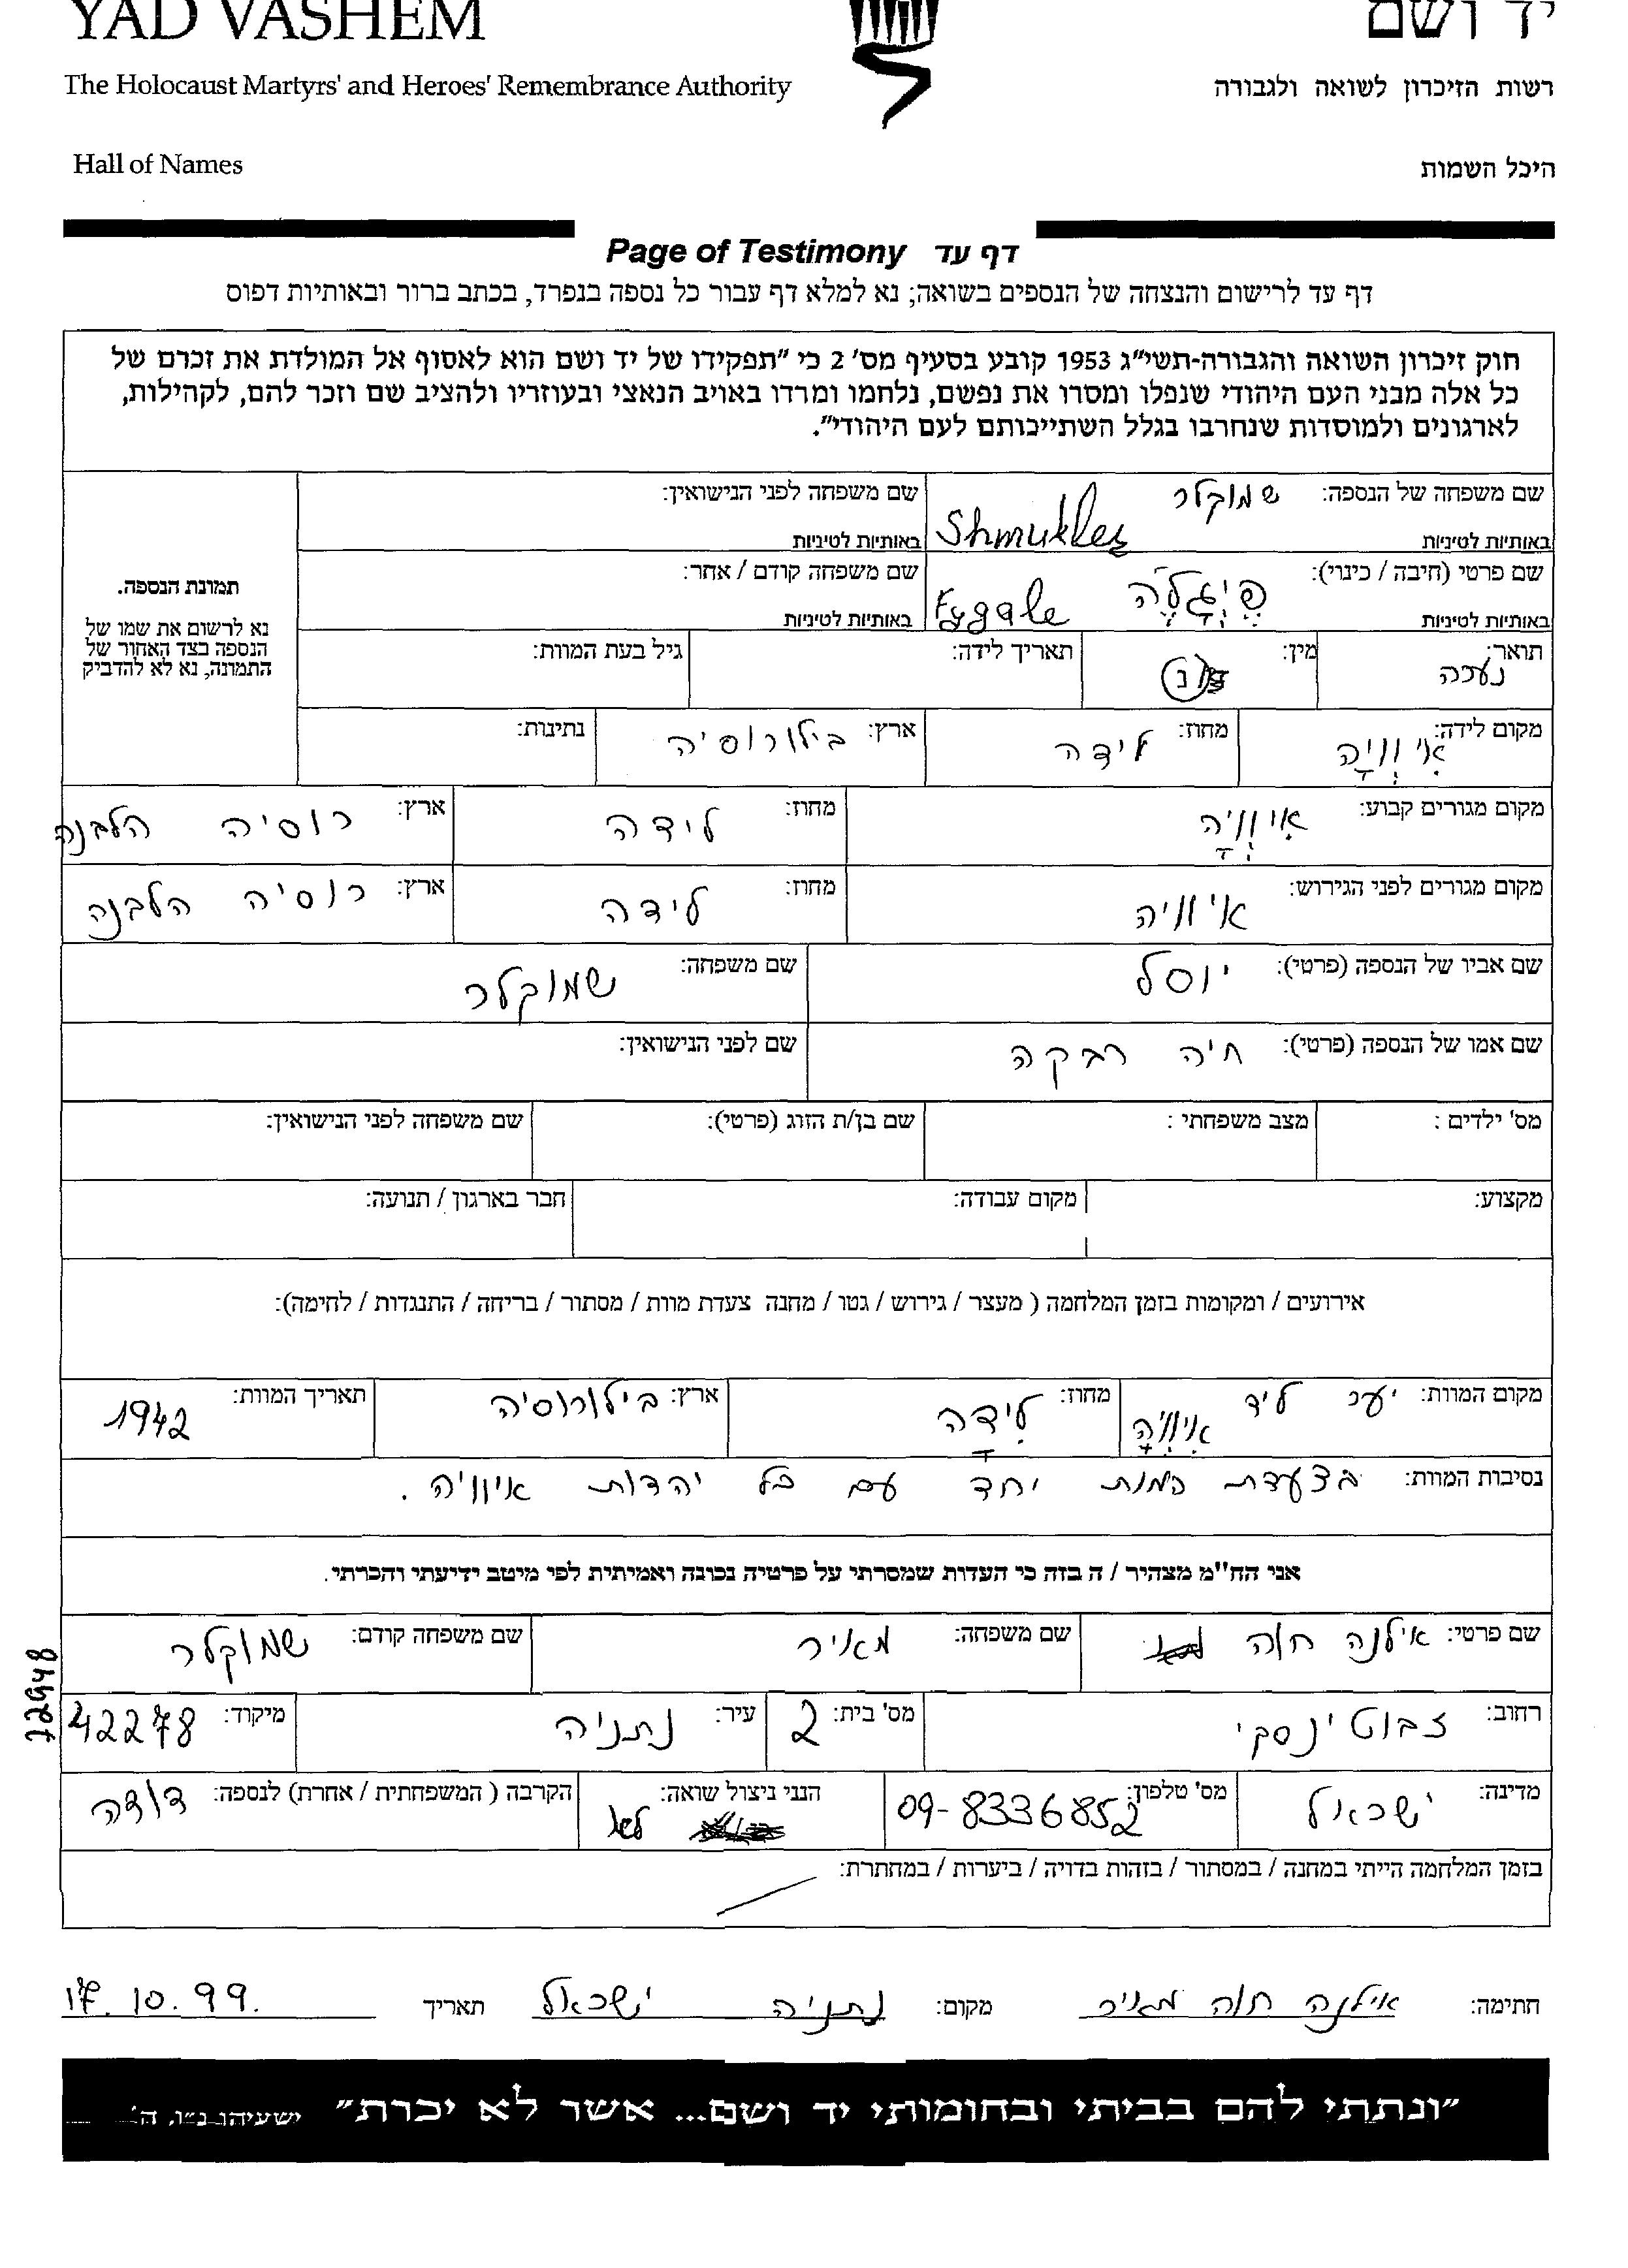 YAD VASHEM יד ושם
The Holocaust Martyrs' and Heroes' Remembrance Authority רשות הזיכרון לשואה ולגבורה
Hall of Names היכל השמות
Page of Testimony דף עד
דף עד לרישום והנצחה של הנספים בשואה; נא למלא דף עבור כל נספה בנפרד, בכתב ברור ובאותיות דפוס
חוק זיכרון השואה והגבורה-תשי"ג 1953 קובע בסעיף מס' 2 כי "תפקידו של יד ושם הוא לאסוף אל המולדת את זכרם של
כל אלה מבני העם היהודי שנפלו ומסרו את נפשם, נלחמו ומרדו באויב הנאצי ובעוזריו ולהציב שם וזכר להם, לקהילות,
לארגונים ולמוסדות שנחרבו בגלל השתייכותם לעם היהודי".
שם משפחה של הנספה: שמוקלר שם משפחה לפני הנישואין:
באותיות לטיניות Shmukler באותיות לטיניות
שם פרטי (חיבה / כינוי): פֵיְגָלֶה שם משפחה קודם / אחר:
באותיות לטיניות Fygale באותיות לטיניות
תמונת הנספה.
נא לרשום את שמו של
הנספה בצד האחור של
התמונה, נא לא להדביק
תואר: נערה מין: נ תאריך לידה: גיל בעת המוות:
מקום לידה: אִיוְויָה מחוז: לידה ארץ: בילורוסיה נתינות:
מקום מגורים קבוע: אִיוְויָה מחוז: לידה ארץ: רוסיה הלבנה
מקום מגורים לפני הגירוש: איוויה מחוז: לידה ארץ: רוסיה הלבנה
שם אביו של הנספה (פרטי): יוסל שם משפחה: שמוקלר
שם אמו של הנספה (פרטי): חיה רבקה שם לפני הנישואין:
מס' ילדים : מצב משפחתי : שם בן/ת הזוג (פרטי): שם משפחה לפני הנישואין:
מקצוע: מקום עבודה: חבר בארגון / תנועה:
אירועים / ומקומות בזמן המלחמה ( מעצר / גירוש / גטו / מחנה צעדת מוות / מסתור / בריחה / התנגדות / לחימה):
מקום המוות: יער ליד אִיוְויָה מחוז: לִידָה ארץ: בילורוסיה תאריך המוות: 1942
נסיבות המוות: בצעדת המות יחד עם כל יהדות איוויה.
אני הח"מ מצהיר / ה בזה כי העדות שמסרתי על פרטיה נכונה ואמיתית לפי מיטב ידיעתי והכרתי.
שם פרטי: אילנה חוה שם משפחה: מאיר שם משפחה קודם: שמוקלר
72948
רחוב: זבוטינסקי מס' בית: 2 עיר: נתניה מיקוד: 42278
מדינה: ישראל מס' טלפון: 09-8336852 הנני ניצול שואה: לא הקרבה ( המשפחתית / אחרת) לנספה: דודה
בזמן המלחמה הייתי במחנה / במסתור / בזהות בדויה / ביערות / במחתרת:
חתימה: אילנה חוה מאיר מקום: נתניה ישראל תאריך 17.10.99.
"ונתתי להם בביתי ובחומותי יד ושם... אשר לא יכרת" ישעיהו נ"ו, ה'